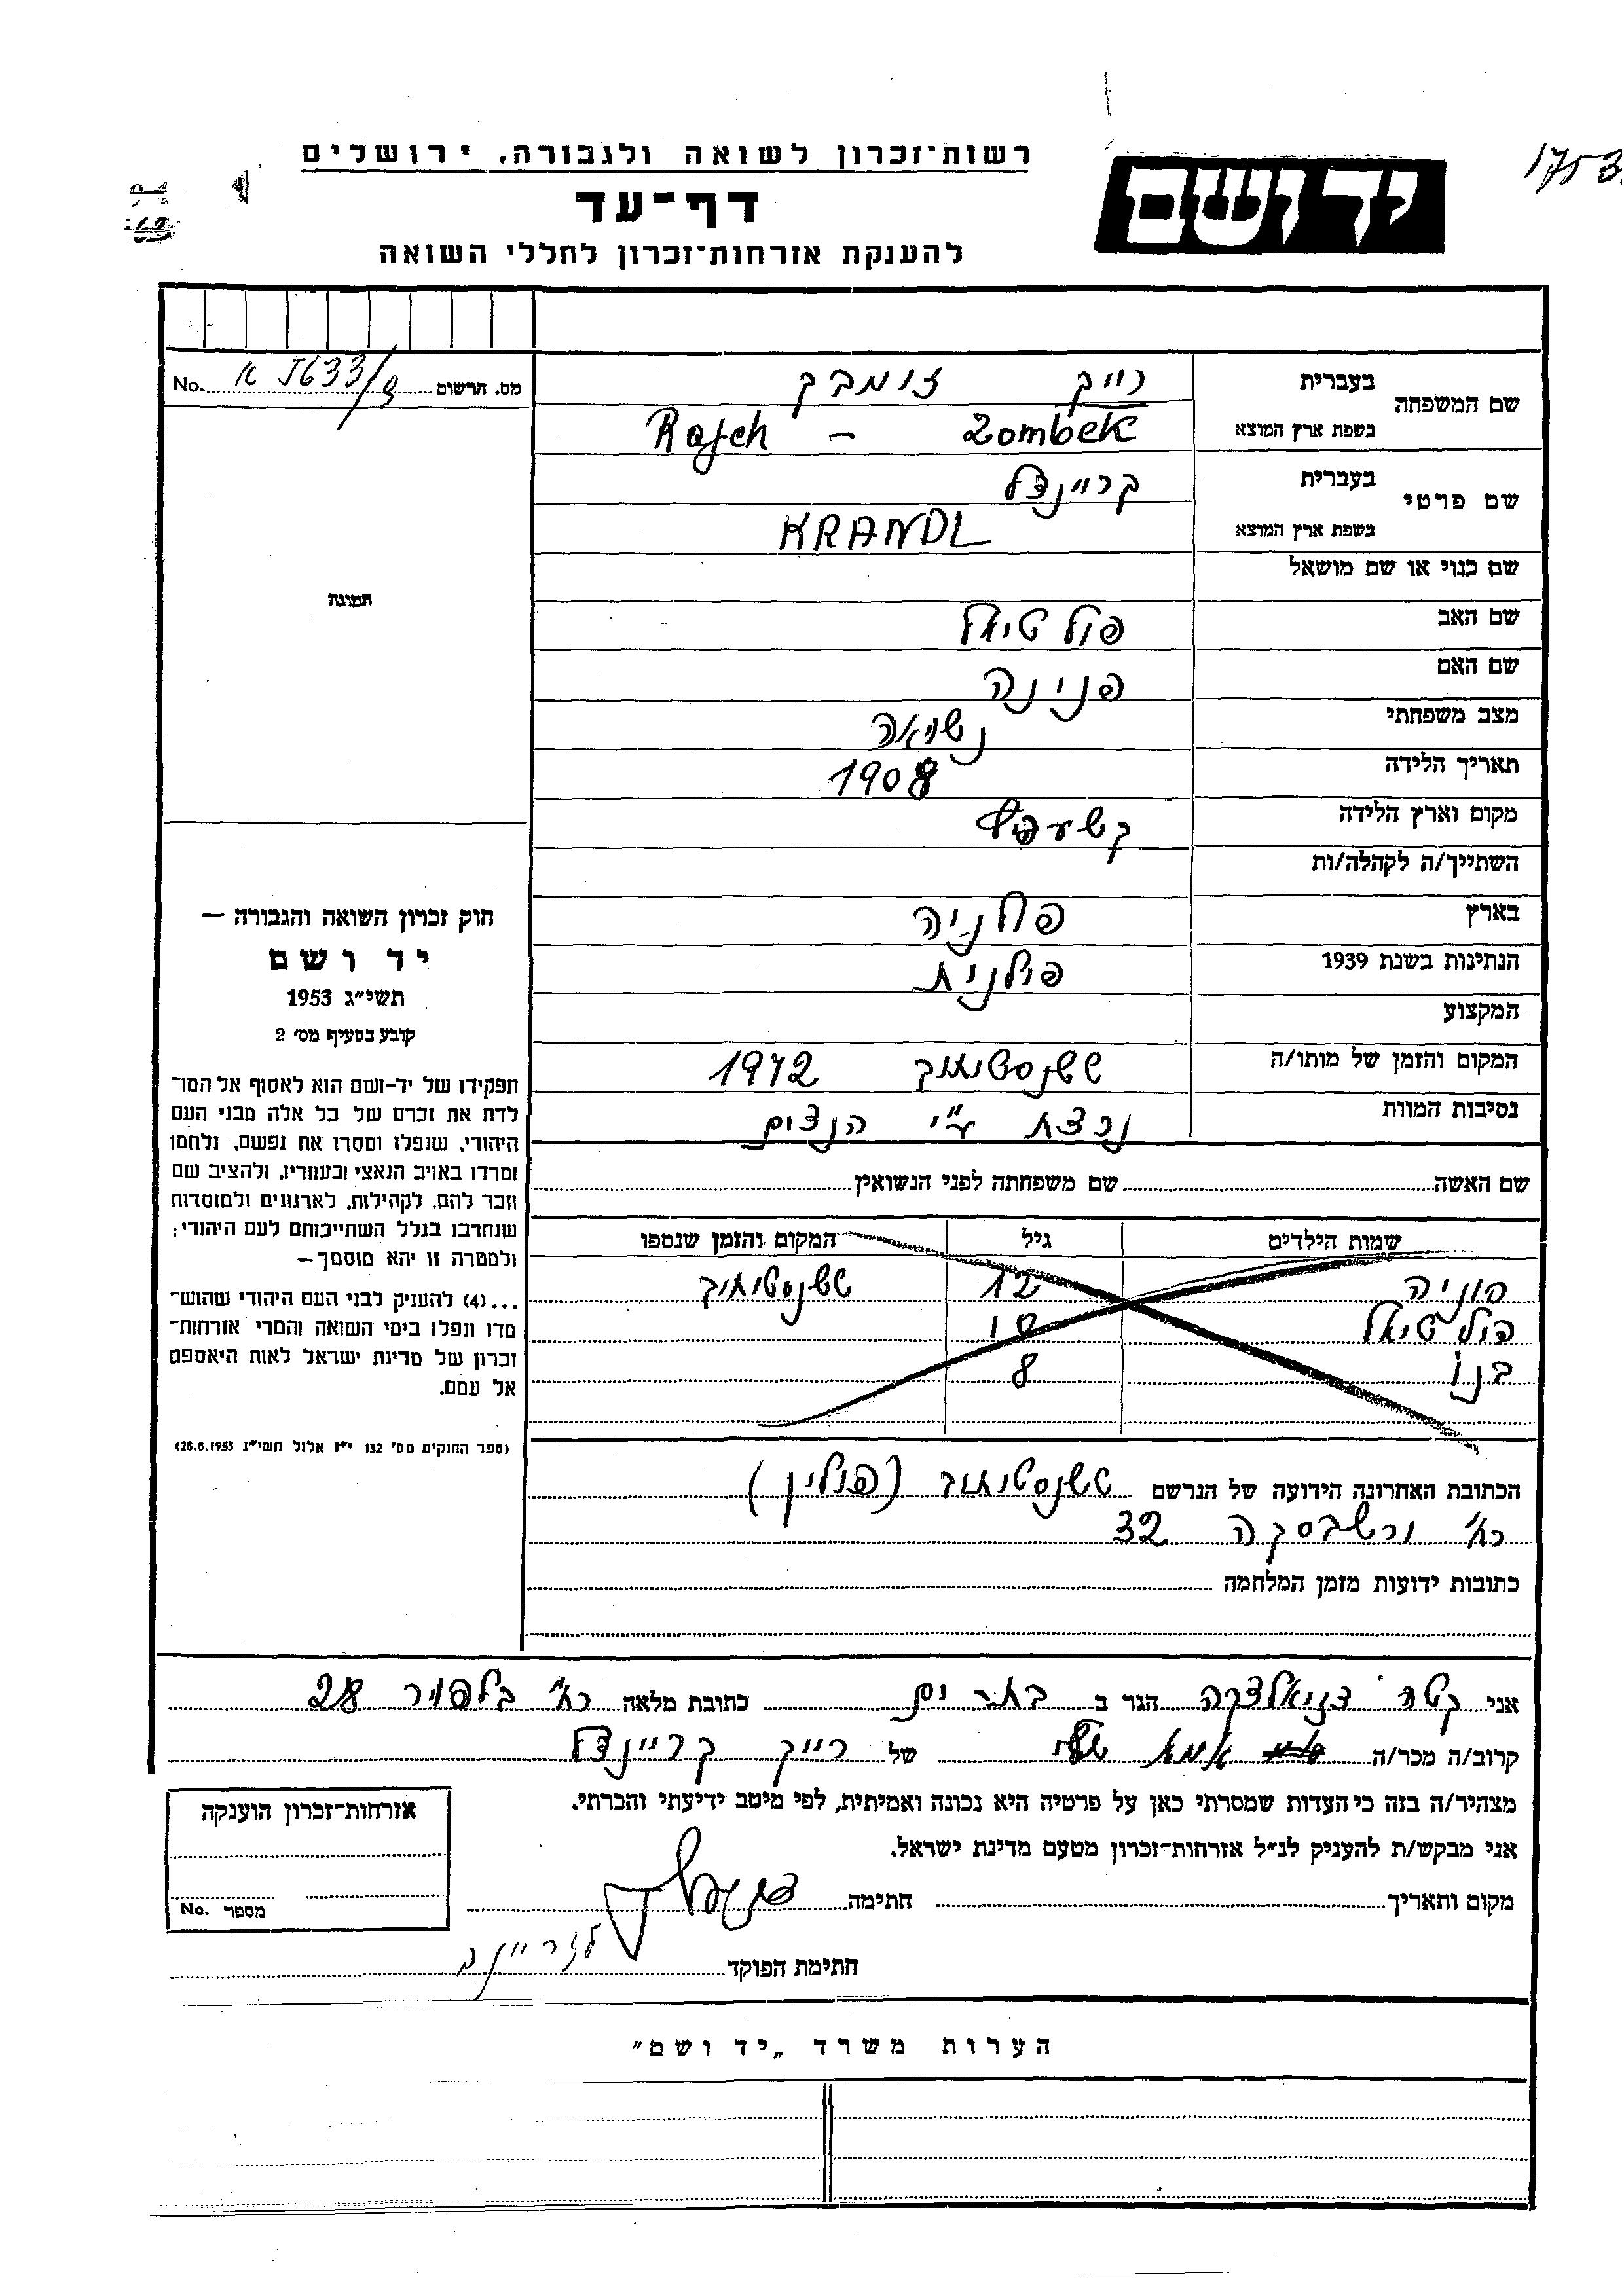 רשות־זכרון לשואה ולגבורה, ירושלים
יד ושם
דף־עד
להענקת אזרחות־זכרון לחללי השואה
מס. הרשום No.
שם המשפחה בעברית רייך זומבק
בשפת ארץ המוצא Rajch – Zombek
שם פרטי בעברית קריינדל
בשפת ארץ המוצא KRANDL
שם כנוי או שם מושאל
תמונה
שם האב פולטיאל
שם האם פנינה
מצב משפחתי נשואה
תאריך הלידה 1908
מקום וארץ הלידה
השתייך/ה לקהלה/ות
בארץ פולניה
הנתינות בשנת 1939 פולנית
המקצוע
המקום והזמן של מותו/ה צ'שנסטוחוב 1942
נסיבות המוות נרצח ע"י הנצים
שם האשה שם משפחתה לפני הנשואין
שמות הילדים גיל המקום והזמן שנספו
12
פולטיאל 10
8
הכתובת האחרונה הידועה של הנרשם (פולין)
רח' ורשבסקה 32
כתובות ידועות מזמן המלחמה
חוק זכרון השואה והגבורה —
יד ושם
תשי״ג 1953
קובע בסעיף מס׳ 2
תפקידו של יד־ושם הוא לאסוף אל המו־
לדת את זכרם של כל אלה מבני העם
היהודי, שנפלו ומסרו את נפשם, נלחמו
ומרדו באויב הנאצי ובעוזריו, ולהציב שם
וזכר להם, לקהילות, לארגונים ולמוסדות
שנחרבו בגלל השתייכותם לעם היהודי;
ולמטרה זו יהא מוסמך—
...(4) להעניק לבני העם היהודי שהוש־
מדו ונפלו בימי השואה והמרי אזרחות־
זכרון של מדינת ישראל לאות היאספם
אל עמם.
(ספר החוקים מס׳ 132 י״ז אלול תשי״ג 28.8.1953)
אני הגר ב בת ים כתובת מלאה רח' בלפור 28
קרוב/ה מכר/ה של רייך קריינדל
מצהיר/ה בזה כי העדות שמסרתי כאן על פרטיה היא נכונה ואמיתית, לפי מיטב ידיעתי והכרתי.
אני מבקש/ת להעניק לנ״ל אזרחות־זכרון מטעם מדינת ישראל.
מקום ותאריך חתימה
חתימת הפוקד
אזרחות־זכרון הוענקה
מספר No.
הערות משרד „יד ושם״